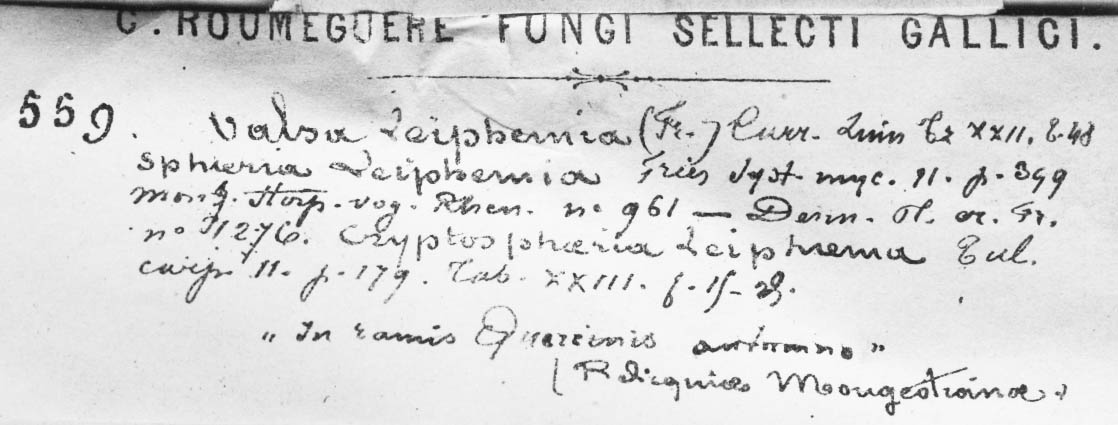 C. ROUMEGUERE FUNGI SELLECTI GALLICI.
559. Valsa Leiphemia (Fr.) Curr. Linn Tr XXII, t. 48
Sphæria Leiphemia Fries Syst. myc. II. p. 399
Moug. Stirp. vog. Rhen. no 961 — Desm. Pl. cr. Fr.
no 1276. Cryptosphæria Leiphæma Tul.
carp. II. p. 179. Tab. XXIII. f.
„ In ramis Quercinis autumno "
( Reliquiæ Mougeotianæ.